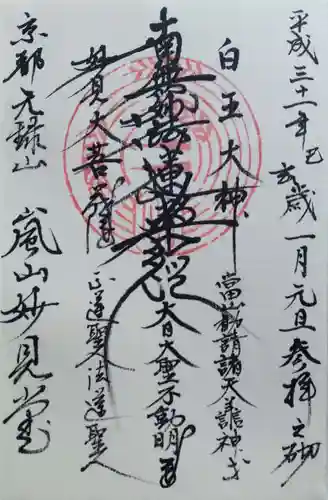 平成三十一年己亥歳一月元旦参拝之砌
白王大神
當勧請諸天善神等
南無妙法蓮華経
大日大聖不動明王
妙見大菩薩
正導聖人法導聖人
京都元録山 嵐山妙見堂